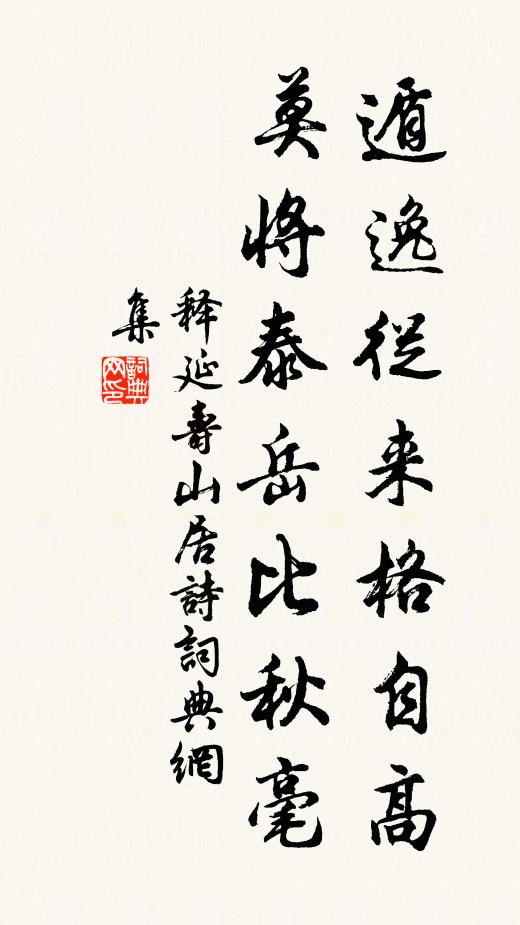 遁逸從来格自高
莫将泰岳比秋毫
释延壽山居詩詞典網
集
詞典网印